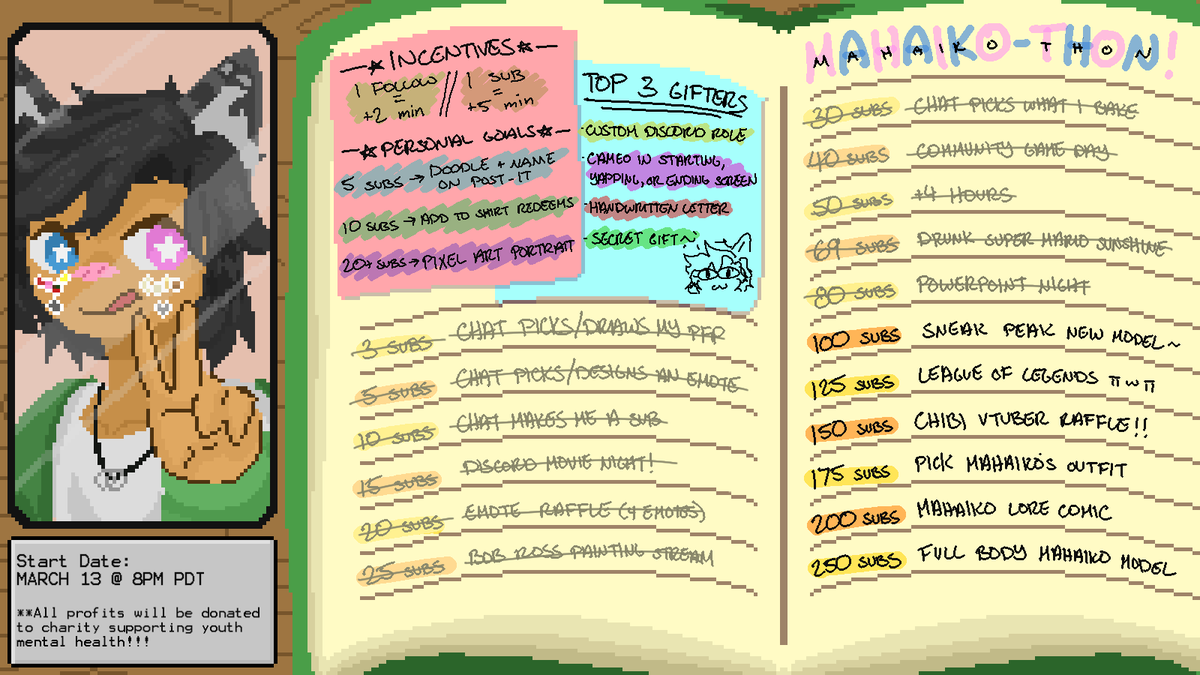 INCENTIVES
1 FOLLOW = +2 min // 1 SUB = +5 min
PERSONAL GOALS
5 SUBS → DOODLE + NAME
ON POST-IT
10 SUBS → ADD TO SHIRT REDEEMS
20+ SUBS → PIXEL ART PORTRAIT
TOP 3 GIFTERS
- CUSTOM DISCORD ROLE
- CAMEO IN STARTING,
YAPPING, OR ENDING SCREEN
- HANDWRITTEN LETTER
- SECRET GIFT~
3 SUBS CHAT PICKS/DRAWS MY PFP
5 SUBS CHAT PICKS/DESIGNS AN EMOTE
10 SUBS CHAT MAKES ME A SUB
15 SUBS DISCORD MOVIE NIGHT!
20 SUBS EMOTE RAFFLE (4 EMOTES)
25 SUBS BOB ROSS PAINTING STREAM
MAHAIKO-THON!
30 SUBS CHAT PICKS WHAT I BAKE
40 SUBS COMMUNITY GAME DAY
50 SUBS +4 HOURS
69 SUBS DRUNK SUPER MARIO SUNSHINE
80 SUBS POWERPOINT NIGHT
100 SUBS SNEAK PEAK NEW MODEL~
125 SUBS LEAGUE OF LEGENDS π ω π
150 SUBS CHIBI VTUBER RAFFLE!!
175 SUBS PICK MAHAIKO'S OUTFIT
200 SUBS MAHAIKO LORE COMIC
250 SUBS FULL BODY MAHAIKO MODEL
Start Date:
MARCH 13 @ 8PM PDT
**All profits will be donated
to charity supporting youth
mental health!!!